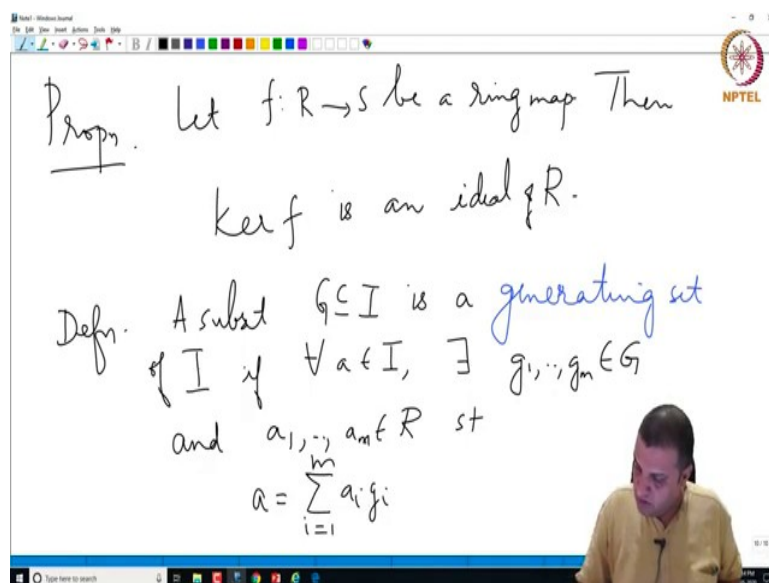 Note1 - Windows Journal
File Edit View Insert Actions Tools Help
NPTEL
Propn. Let f: R → S be a ring map Then
ker f is an ideal of R.
Defn. A subst G ⊆ I is a generating set
of I if ∀ a ∈ I, ∃ g₁, .., gₘ ∈ G
and a₁, .., aₘ ∈ R st
m
a = ∑ aᵢ gᵢ
i=1
10 / 10
Type here to search